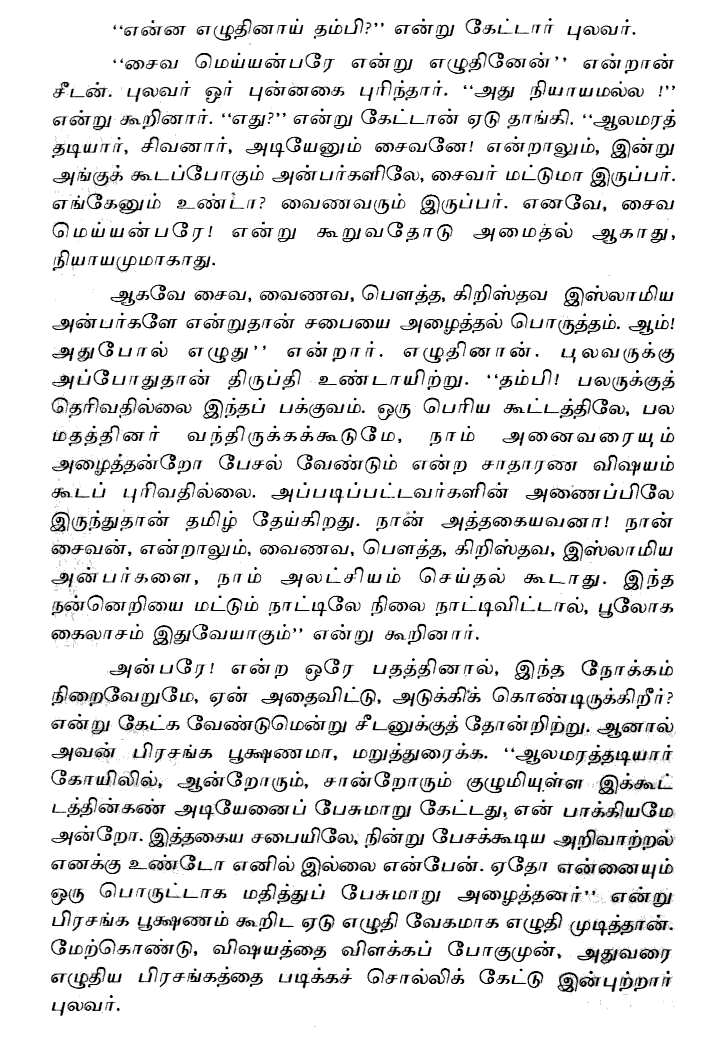 “என்ன எழுதினாய் தம்பி?” என்று கேட்டார் புலவர்.
“சைவ மெய்யன்பரே என்று எழுதினேன்” என்றான்
சீடன். புலவர் ஓர் புன்னகை புரிந்தார். “அது நியாயமல்ல !”
என்று கூறினார். “எது?” என்று கேட்டான் ஏடு தாங்கி. “ஆலமரத்
தடியார், சிவனார், அடியேனும் சைவனே! என்றாலும், இன்று
அங்குக் கூடப்போகும் அன்பர்களிலே, சைவர் மட்டுமா இருப்பர்.
எங்கேனும் உண்டா? வைணவரும் இருப்பர். எனவே, சைவ
மெய்யன்பரே! என்று கூறுவதோடு அமைதல் ஆகாது,
நியாயமுமாகாது.
ஆகவே சைவ, வைணவ, பௌத்த, கிறிஸ்தவ இஸ்லாமிய
அன்பர்களே என்றுதான் சபையை அழைத்தல் பொருத்தம். ஆம்!
அதுபோல் எழுது” என்றார். எழுதினான். புலவருக்கு
அப்போதுதான் திருப்தி உண்டாயிற்று. “தம்பி! பலருக்குத்
தெரிவதில்லை இந்தப் பக்குவம். ஒரு பெரிய கூட்டத்திலே, பல
மதத்தினர் வந்திருக்கக்கூடுமே, நாம் அனைவரையும்
அழைத்தன்றோ பேசல் வேண்டும் என்ற சாதாரண விஷயம்
கூடப் புரிவதில்லை. அப்படிப்பட்டவர்களின் அணைப்பிலே
இருந்துதான் தமிழ் தேய்கிறது. நான் அத்தகையவனா! நான்
சைவன், என்றாலும், வைணவ, பௌத்த, கிறிஸ்தவ, இஸ்லாமிய
அன்பர்களை, நாம் அலட்சியம் செய்தல் கூடாது. இந்த
நன்னெறியை மட்டும் நாட்டிலே நிலை நாட்டிவிட்டால், பூலோக
கைலாசம் இதுவேயாகும்” என்று கூறினார்.
அன்பரே! என்ற ஒரே பதத்தினால், இந்த நோக்கம்
நிறைவேறுமே, ஏன் அதைவிட்டு, அடுக்கிக் கொண்டிருக்கிறீர்?
என்று கேட்க வேண்டுமென்று சீடனுக்குத் தோன்றிற்று. ஆனால்
அவன் பிரசங்க பூக்ஷணமா, மறுத்துரைக்க. “ஆலமரத்தடியார்
கோயிலில், ஆன்றோரும், சான்றோரும் குழுமியுள்ள இக்கூட்
டத்தின்கண் அடியேனைப் பேசுமாறு கேட்டது, என் பாக்கியமே
அன்றோ. இத்தகைய சபையிலே, நின்று பேசக்கூடிய அறிவாற்றல்
எனக்கு உண்டோ எனில் இல்லை என்பேன். ஏதோ என்னையும்
ஒரு பொருட்டாக மதித்துப் பேசுமாறு அழைத்தனர்” என்று
பிரசங்க பூக்ஷணம் கூறிட ஏடு எழுதி வேகமாக எழுதி முடித்தான்.
மேற்கொண்டு, விஷயத்தை விளக்கப் போகுமுன், அதுவரை
எழுதிய பிரசங்கத்தை படிக்கச் சொல்லிக் கேட்டு இன்புற்றார்
புலவர்.